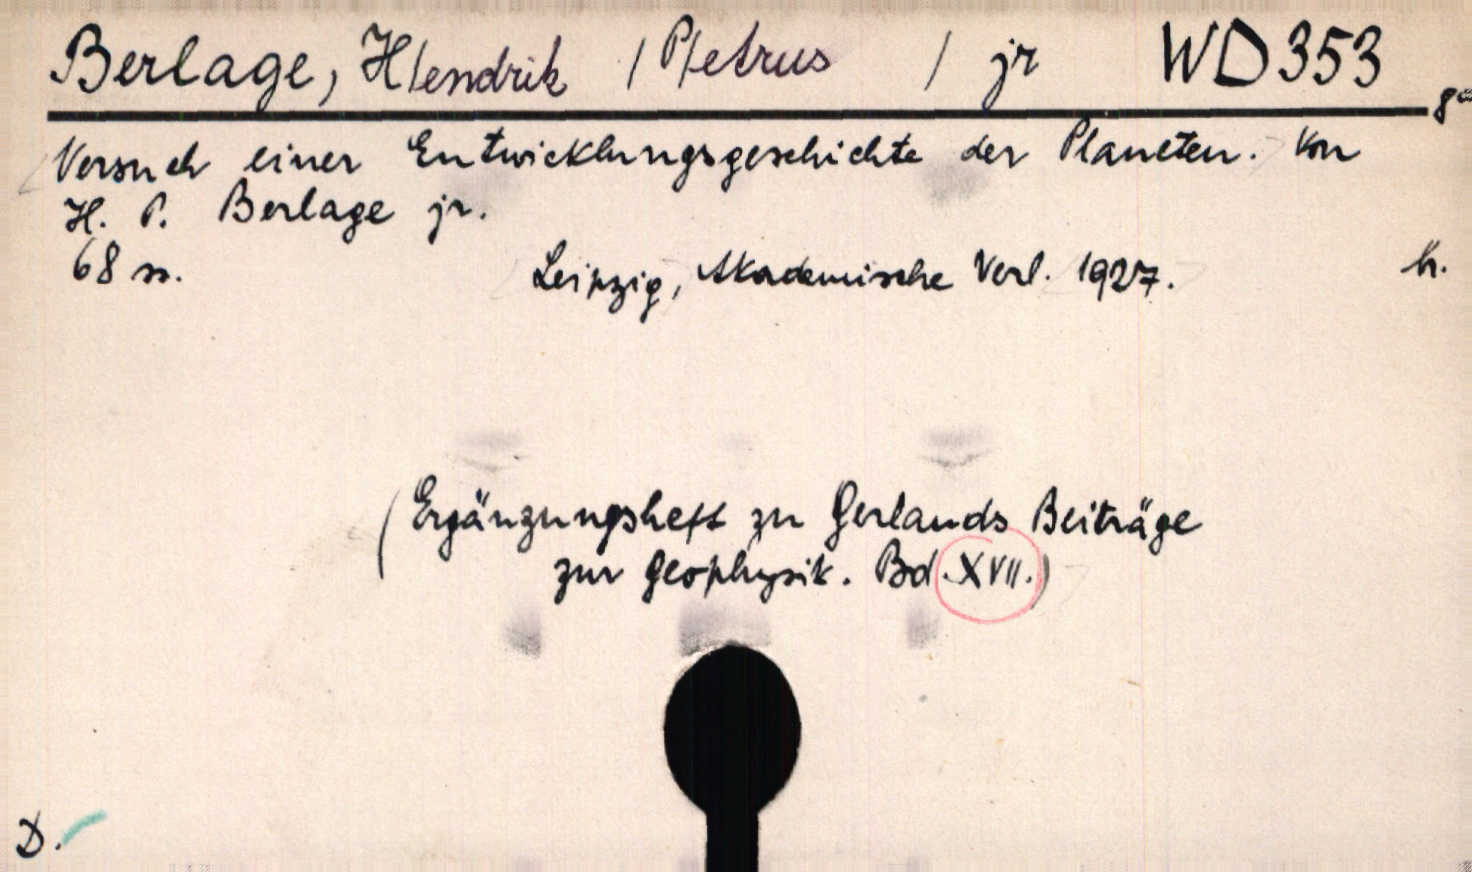 Berlage, H/endrik / P/etrus / jr WD353
8°
Versuch einer Entwicklungsgeschichte der Planeten. Von
H. P. Berlage jr.
68 ss. Leipzig, Akademische Verl. 1927. h.
(Ergänzungsheft zu Gerlands Beiträge
zur Geophysik. Bd. XVII.)
D.